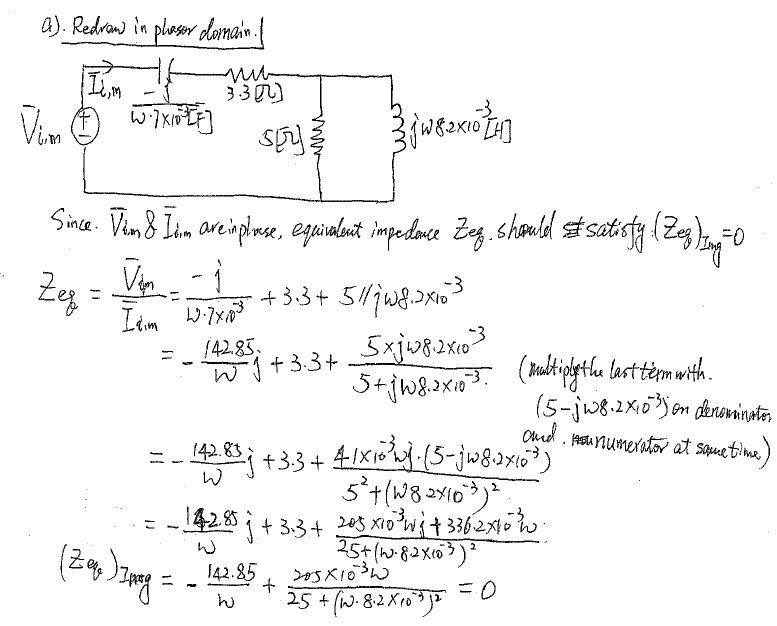 a). Redraw in phasor domain.
I̅i,m
-j
/ω·7×10⁻³[F]
3.3[Ω]
V̅i,m
5[Ω]
jω8.2×10⁻³[H]
Since. V̅i,m & I̅i,m are in phase, equivalent impedence Zeq. should satisfy.(Zeq)Img=0
Zeq = V̅i,m/I̅i,m = -j/ω·7×10⁻³ + 3.3 + 5//jω8.2×10⁻³
= - 142.85/ω j + 3.3 + 5×jω8.2×10⁻³/5+jω8.2×10⁻³.
(multiply the last term with.
(5-jω8.2×10⁻³) on denominator
and. numerator at same time)
= - 142.85/ω j + 3.3 + 41×10⁻³ωj·(5-jω8.2×10⁻³)/5²+(ω8.2×10⁻³)²
= - 142.85/ω j + 3.3 + 205×10⁻³ωj+336.2×10⁻⁶ω/25+(ω·8.2×10⁻³)²
(Zeq)Imag = - 142.85/ω + 205×10⁻³ω/25+(ω·8.2×10⁻³)² = 0